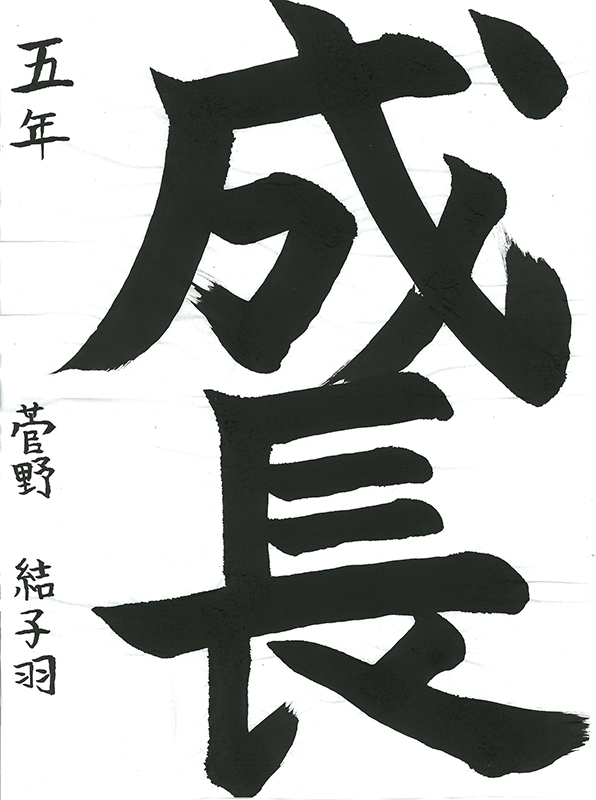 成長
五年
菅野 結子羽